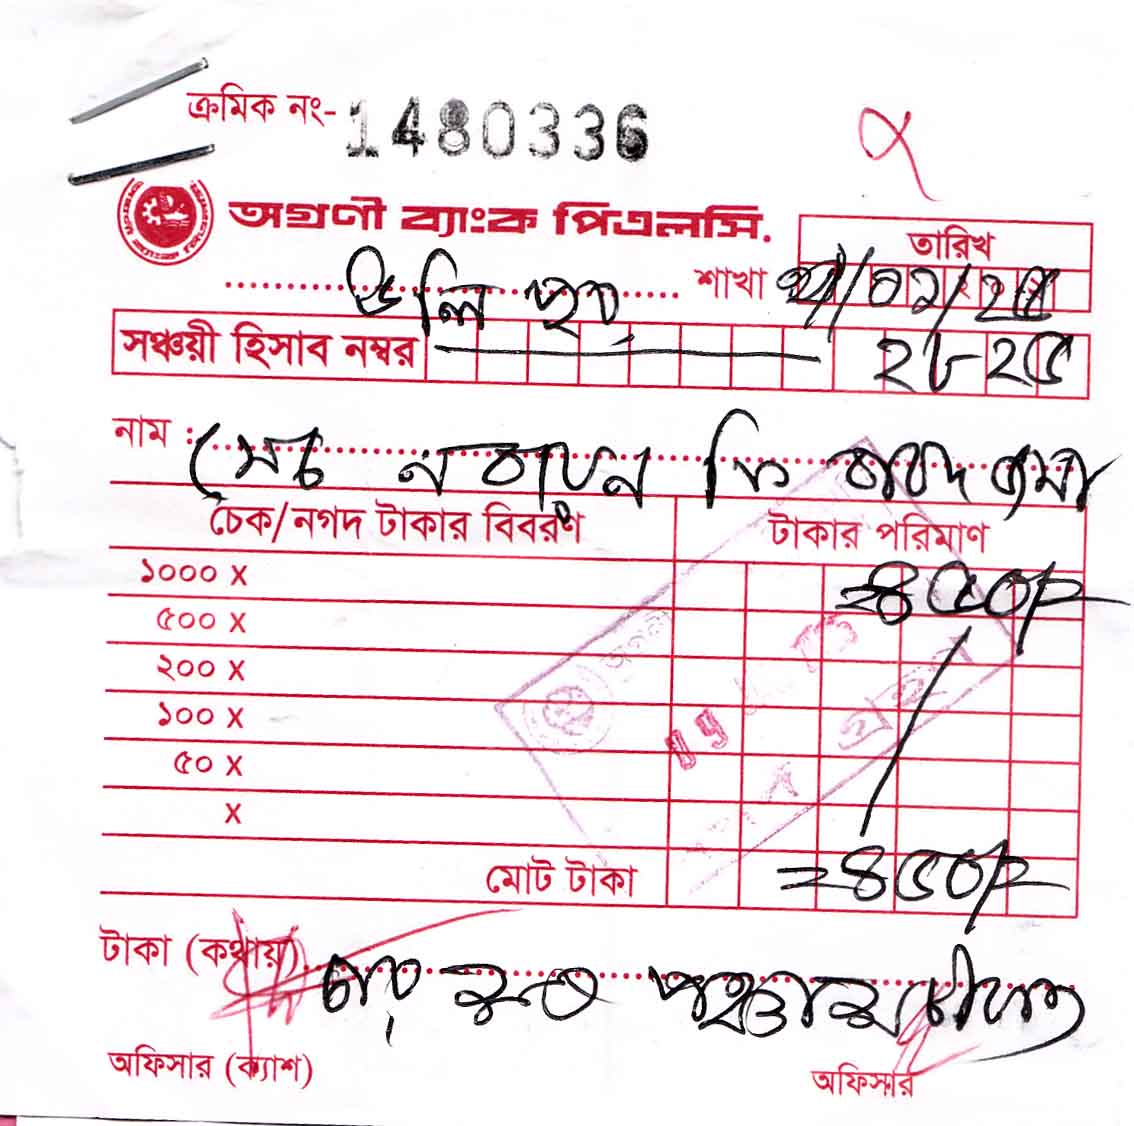 ক্রমিক নং- 1480336
অগ্রণী ব্যাংক পিএলসি.
তারিখ
উলিপুর শাখা
সঞ্চয়ী হিসাব নম্বর ২৮২৫
নাম : সেচ নবায়ন ফি বাবদ জমা
চেক/নগদ টাকার বিবরণ টাকার পরিমাণ
১০০০ X =৪৫০/-
৫০০ X
২০০ X
১০০ X
৫০ X
X
মোট টাকা =৪৫০/-
টাকা (কথায়) চার শত পঞ্চাশ টাকা
অফিসার (ক্যাশ) অফিসার